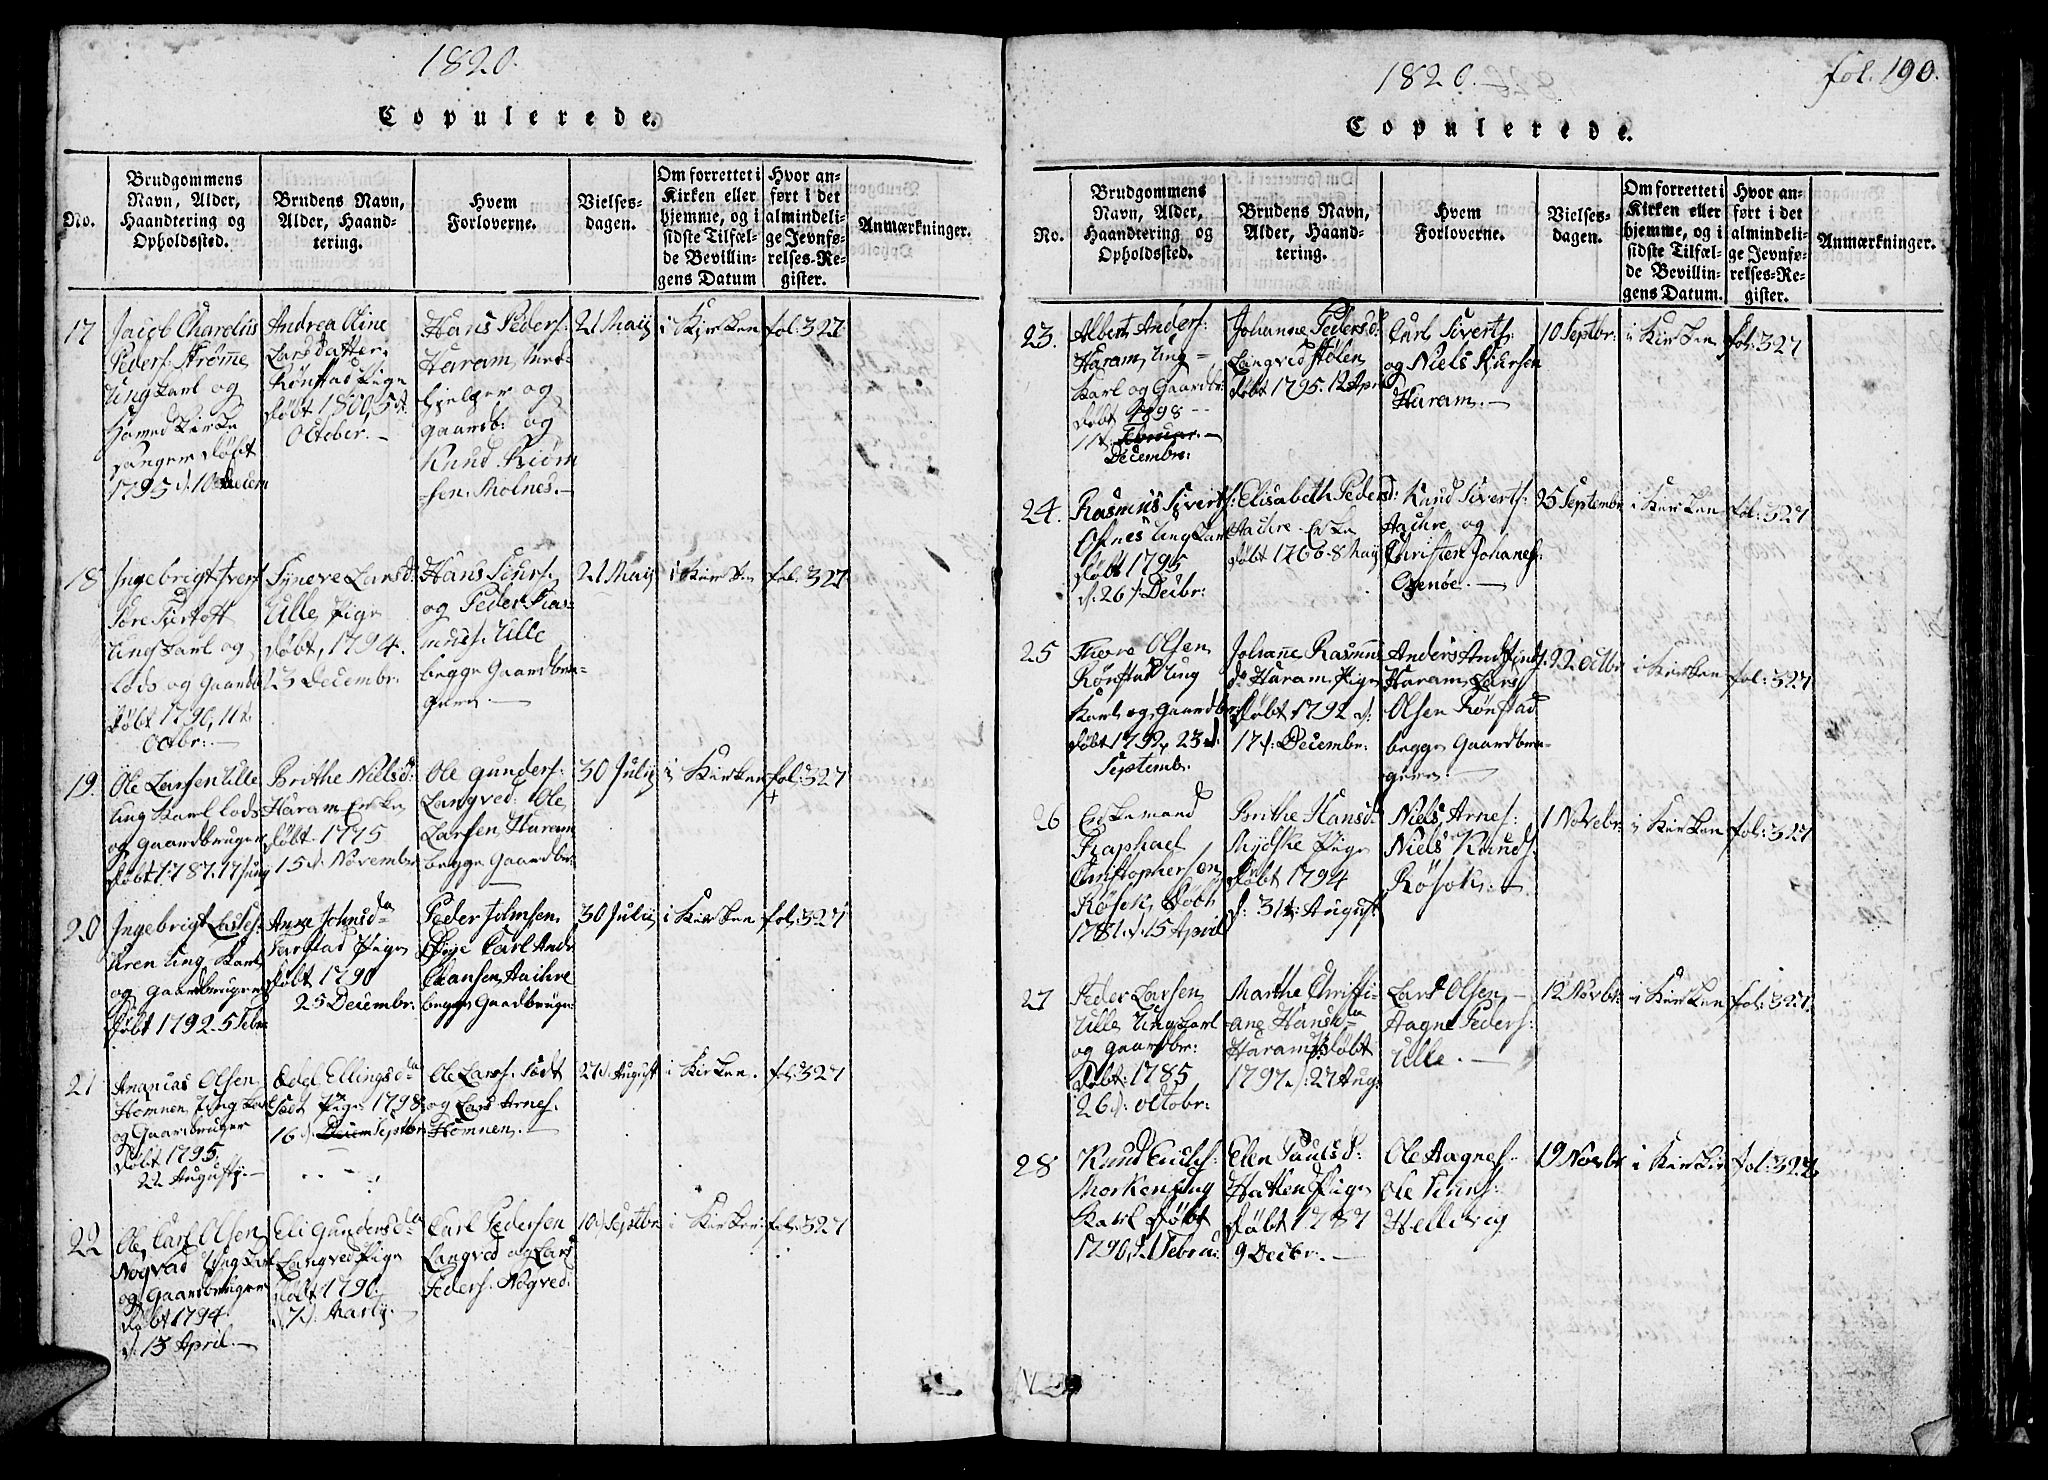 1820.
Copulerede.
No.
Brudgommens
Navn, Alder,
Haandtering og
Opholdssted.
Brudens Navn,
Alder, Haand-
tering.
Hvem
Forloverne.
Vielses-
dagen.
Om forrettet i
Kirken eller
hjemme, og i
sidste Tilfæl-
de Bevillin-
gens Datum
Hvor an-
ført i det
almindeli-
ge Jevnfø-
relses-Re-
gister.
Anmærkninger.
17
Jacob Charolius
Peders: Strømme
Ungkarl og
Kirke
sanger døbt
1795 d. 10 Decem
Andrea Oline
Larsdatter
Rønstad Pige
døbt 1800 5 d.
October.
Hans Peders:
Haram, Med-
hjelper og
Gaardb: og
Knud
sen Molnes.
21 Maij
i Kirken
fol: 327
18
Ingebrigt Ivers
Søre Tustoft
Ungkarl og
Lods og Gaardb
døbt 1790, 11 d.
Octbr:
Synneve Larsd:
Ulle Pige
døbt, 1794.
23 Decembr:
Hans Siurs:
og Peder Ras-
muss: Ulle
begge Gaardbru-
gere.
21 Maij
i Kirken
fol: 327
19.
Ole Larsen Ulle
Ung Karl Lods
og Gaardbruger
døbt 1787. 17 Juny
Brithe Nielsd:
Haram Enke
døbt 1775
15 d. November
Ole Gunders:
Langved: Ole
Larsen, Haram
begge Gaardbr:
30 Julij
i Kirken
fol: 327
20
Ingebrigt Larses:
Uren Ung Karl
og Gaardbruger
døbt 1792. 5 Febr:
Anne Johnsda
Farstad Pige
døbt 1790
25 Decembr:
Peder Johnsen
Carl Andr
Clausen Aachre
begge Gaardbruger
30 Julij
i Kirken
fol: 327
21
Ananias Olsen
Hømnen, Ung Karl
og Gaardbruger
døbt 1795.
22 Augusty.
Edel Ellingsda
Sædt Pige 1798
16 d. Decem Septbr
Ole Lars: Sædt
og Lars Arnes:
Hømnen.
27 d. August
i Kirken.
fol: 327
22
Ole Carl Olsen
Nogvad Ung Karl
og Gaardbruger
Døbt 1794.
d. 13 April.
Eli Gundersda
Langved Pige
døbt 1790.
d. 7 d. Martij.
Carl Pedersen
Langved og Lars
Peders: Nogved.
10 d. Septbr
i Kirken
fol: 327
1820.
fol. 190.
Copulerede.
No.
Brudgommens
Navn, Alder,
Haandtering og
Opholdssted.
Brudens Navn,
Alder, Haand-
tering.
Hvem
Forloverne.
Vielses-
dagen.
Om forrettet i
Kirken eller
hjemme, og i
sidste Tilfæl-
de Bevillin-
gens Datum.
Hvor an-
ført i det
almindeli-
ge Jevnfø-
relses-Re-
gister.
Anmærkninger.
23.
Albert Anders:
Haram, Ung-
karl og Gaardbr:
døbt 1798
11 d. Februar.
Decembr:
Johanne Pedersd:
Langved Stølen
døbt 1795. 12 Apr
Carl Siverts:
og Niels Siursen
Haram.
10 Septbr:
i Kirken
fol: 327
24.
Rasmus Siverts:
Ung Karl
døbt 1795
d. 26 d. Decbr:
Elisabeth Pedersd:
Aachre Enke
døbt 1766. 8 Maij
Knud Siverts:
Aachre og
Christen Johanes:
25 Septembr
i Kirken
fol: 327
25
Thore Olsen
Rønstad Ung
Karl og Gaardbr:
døbt 1792, 23 d.
Septemb.
Johanne Rasmus
da Haram Pige
døbt 1792 d:
17 d: December.
Anders
Haram, Lars
Olsen Rønstad
begge Gaardbru-
gere.
22 Octbr
i Kirken
fol: 327
26
Enkemand
Raphael
Christophersen
Røsok, Døbt
1781. d. 15 April
Brithe Hansd:
Mydske Pige
døbt 1794
d: 31 d: August
Niels Arnes:
Niels Knuds:
Røsok:
1 Novebr:
i Kirken
fol: 327
27
Peder Larsen
Ulle Ungkarl
og Gaardbr:
døbt: 1785
26 d: Octobr:
Marthe Christi-
ane Hansda
Haram døbt
1797 d: 27 Aug:
Lars Olsen
Aagne Peders:
Ulle.
12 Novbr:
i Kirken
fol: 327.
28
Knud
Morken Ung
Karl Døbt
1796, 21 Febru:
Ellen Paulsd:
Hatlen Pige
døbt 1787
9 Decbr:
Ole Aagnes:
Ole
Hellevig
19 Novbr
i Kirken
fol: 327.